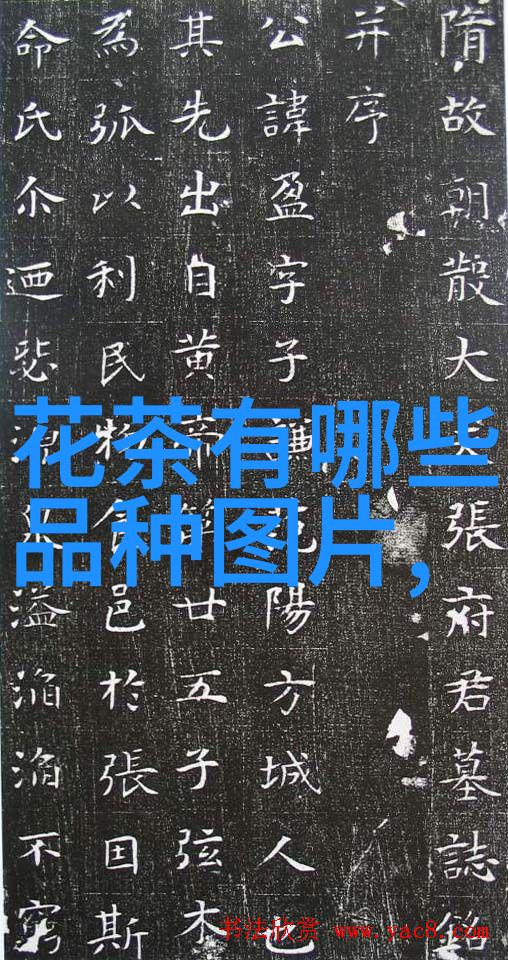 隋故朝散大夫張府君墓誌銘
并序
公諱盈字子謙范陽方城人也
其先出自黄帝第廿五子弦木
為弧以利民物食邑於張因斯
命氏尒迺源泉溢滔滔不窮
花茶有哪些
品种图片,
书法欣赏 www.yac8.com